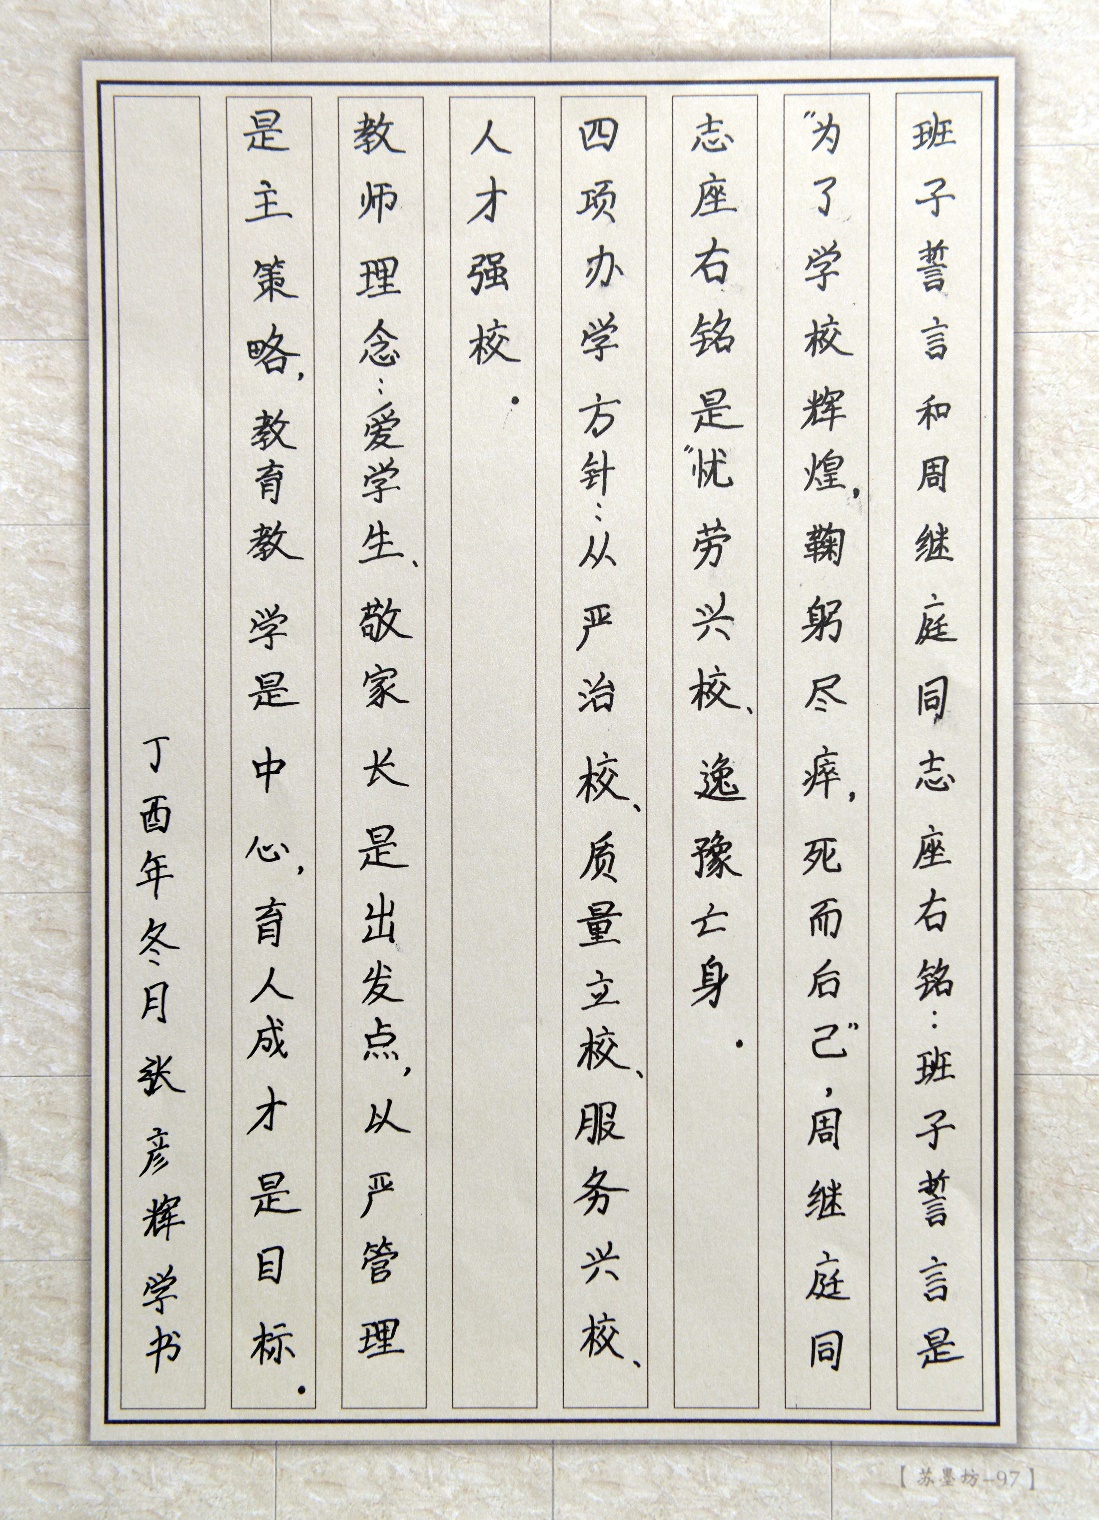 班子誓言和周继庭同志座右铭：班子誓言是
“为了学校辉煌，鞠躬尽瘁，死而后己”，周继庭同
志座右铭是“忧劳兴校、逸豫亡身.
四项办学方针：从严治校、质量立校、服务兴校、
人才强校.
教师理念：爱学生、敬家长是出发点，以严管理
是主策略，教育教学是中心，育人成才是目标.
丁酉年冬月张彦辉学书
【苏墨坊-97】